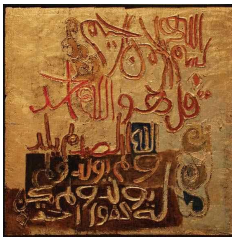 بسم الله الرحمن الرحيم
قل هو الله احد
الله الصمد لم يلد
ولم يولد ولم
يكن
له كفوا احد